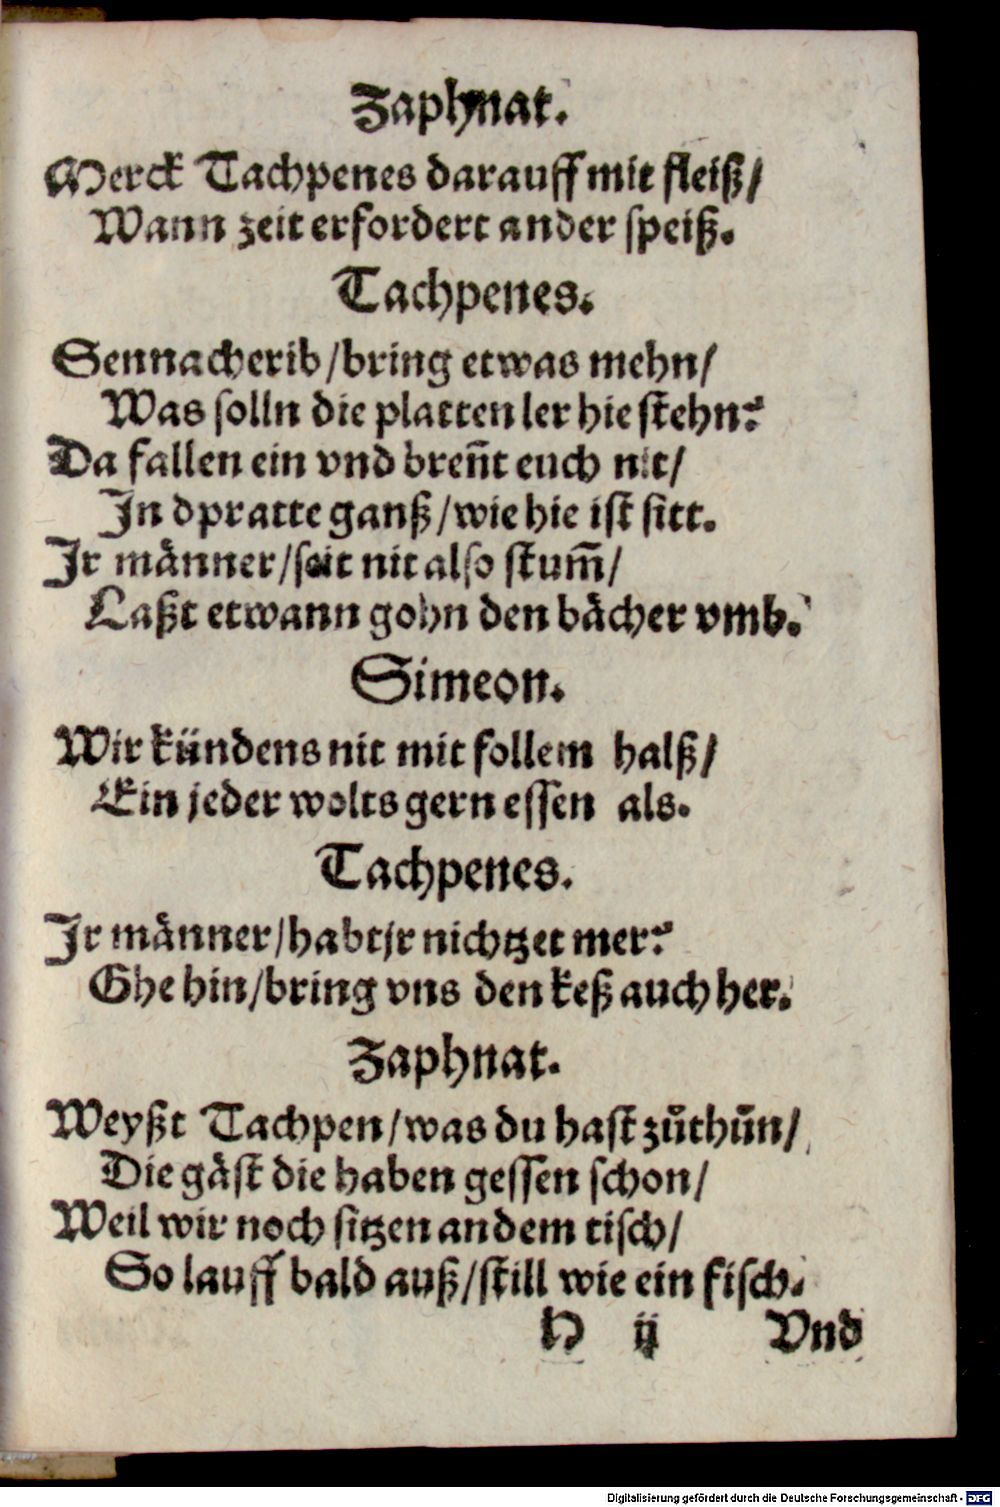 Zaphnat.
Merck Tachpenes darauff mit fleiß/
Wann zeit erfordert ander speiß.
Tachpenes.
Sennacherib/bring etwas mehn/
Was solln die platten ler hie stehn?
Da fallen ein vnd breñt euch nit/
In dpratte ganß/wie hie ist sitt.
Ir männer/seit nit also stum̃/
Laßt etwann gohn den bächer vmb.
Simeon.
Wir kündens nit mit follem halß/
Ein jeder wolts gern essen als.
Tachpenes.
Ir männer/habt jr nichtzet mer?
Ghe hin/bring vns den keß auch her.
Zaphnat.
Weyßt Tachpen/was du hast zůthůn/
Die gäst die haben gessen schon/
Weil wir noch sitzen an dem tisch/
So lauff bald auß/still wie ein fisch.
H ij Vnd
Digitalisierung gefördert durch die Deutsche Forschungsgemeinschaft - DFG